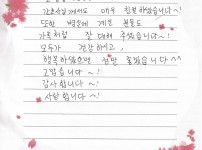 간호사님께서도 매우 친절하셨습니다~!
또한 병원에 계신 분들도
가족처럼 잘 대해 주셨습니다~!
모두가 건강하시고,
행복하셨으면 정말 좋겠습니다^^
고맙습니다~!
감사합니다~!
사랑합니다~!